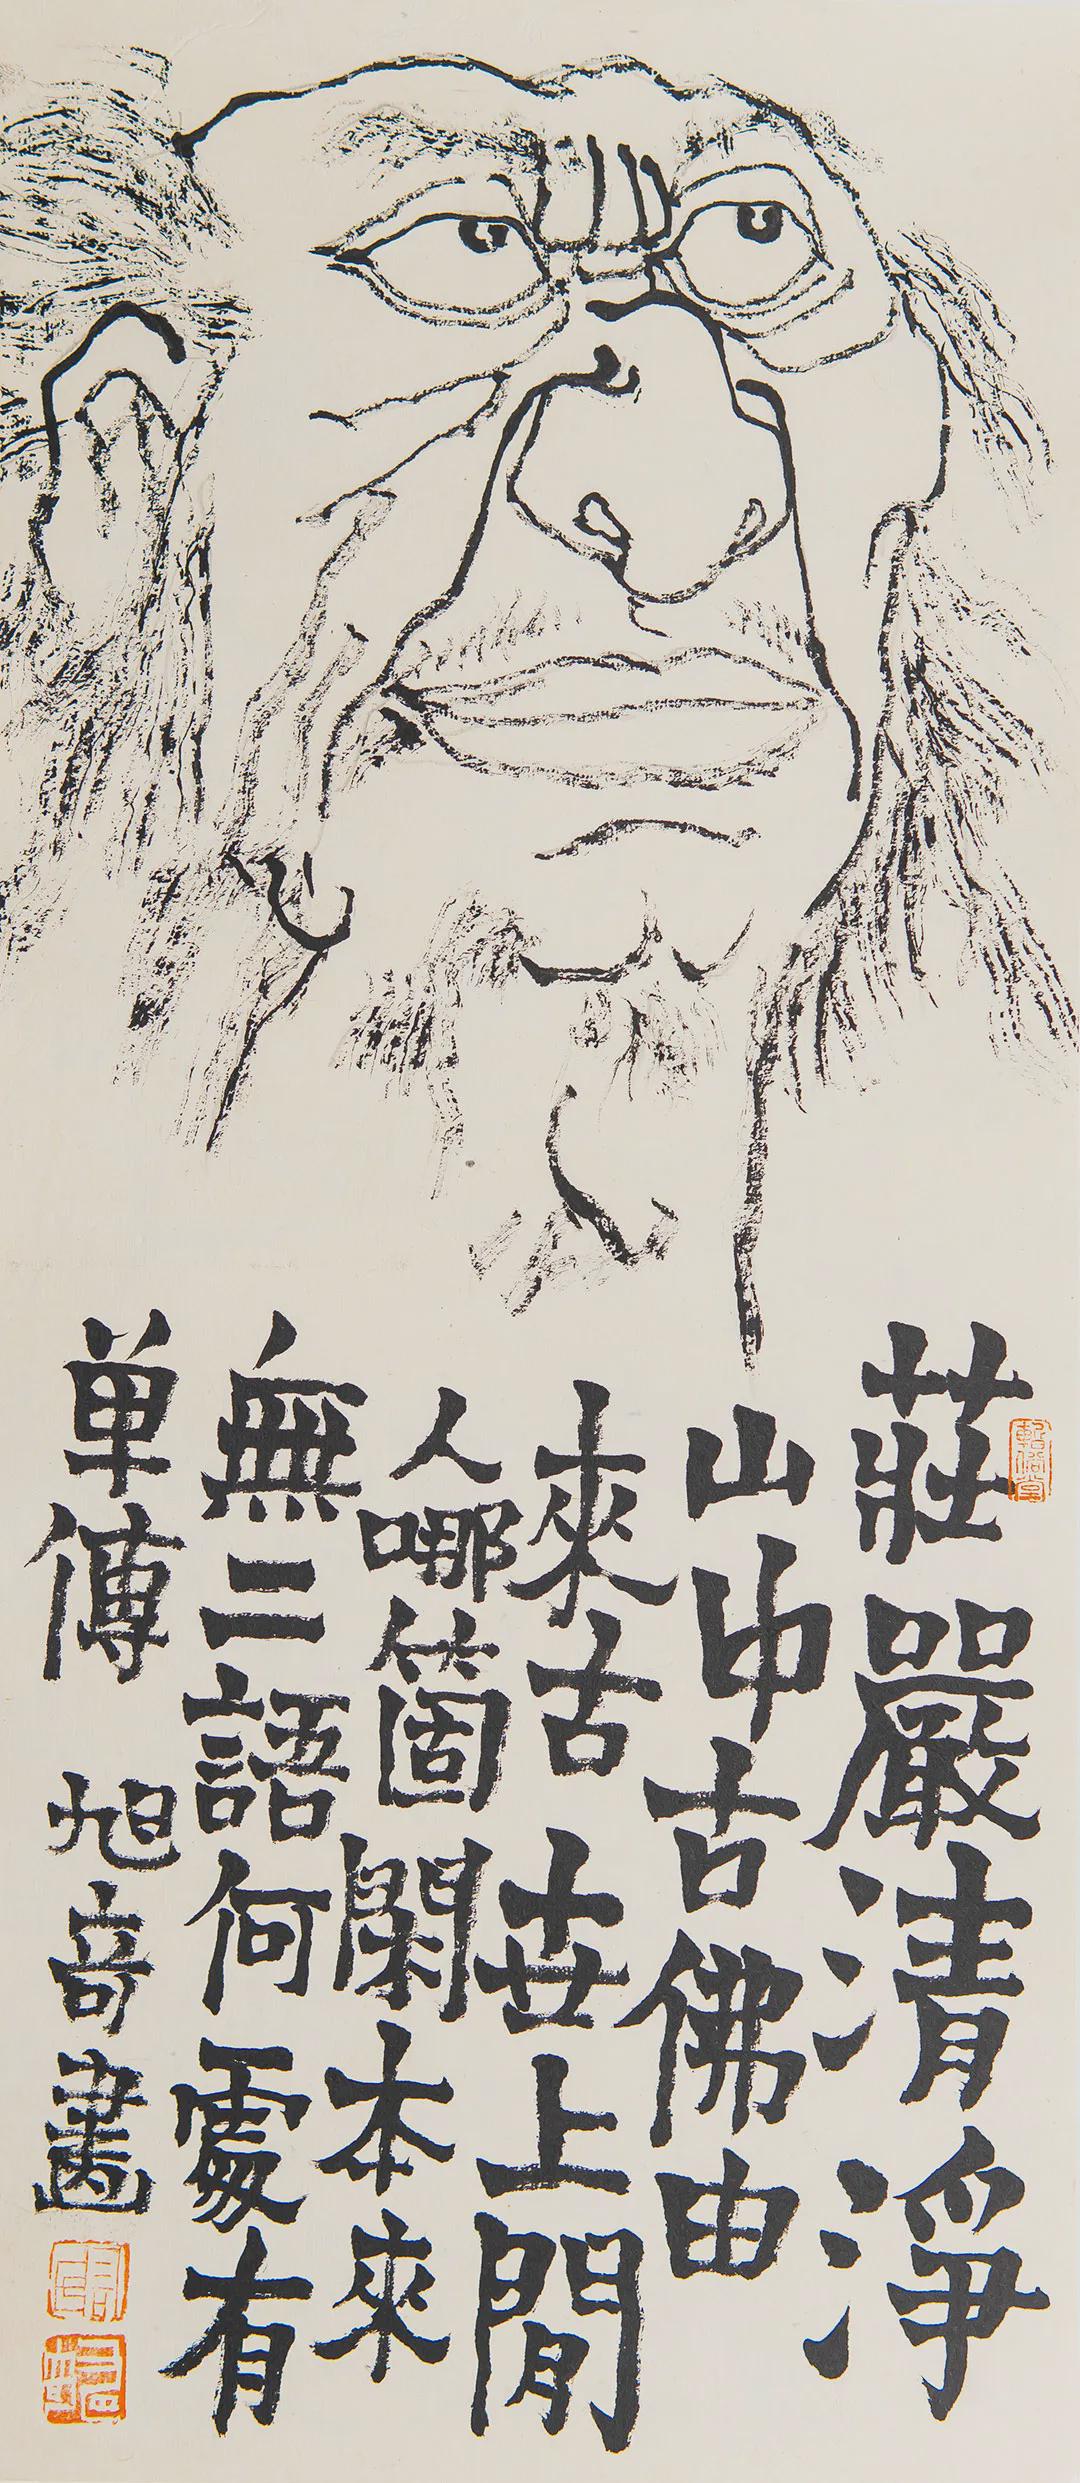 莊嚴清淨
山中古佛由
來古世上閒
人哪箇閑本來
無二語何處有
单傳 旭竒畫